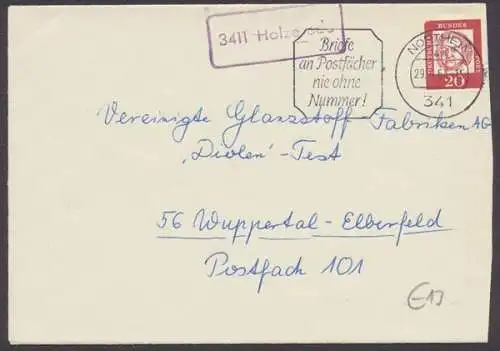 3411 Holze
Briefe
an Postfächer
nie ohne
Nummer!
NORTHEIM
29.
341
DEUTSCHE BUNDESPOST
20
Vereinigte Glanzstoff-Fabriken AG
'Diolen'-Test
56 Wuppertal-Elberfeld
Postfach 101